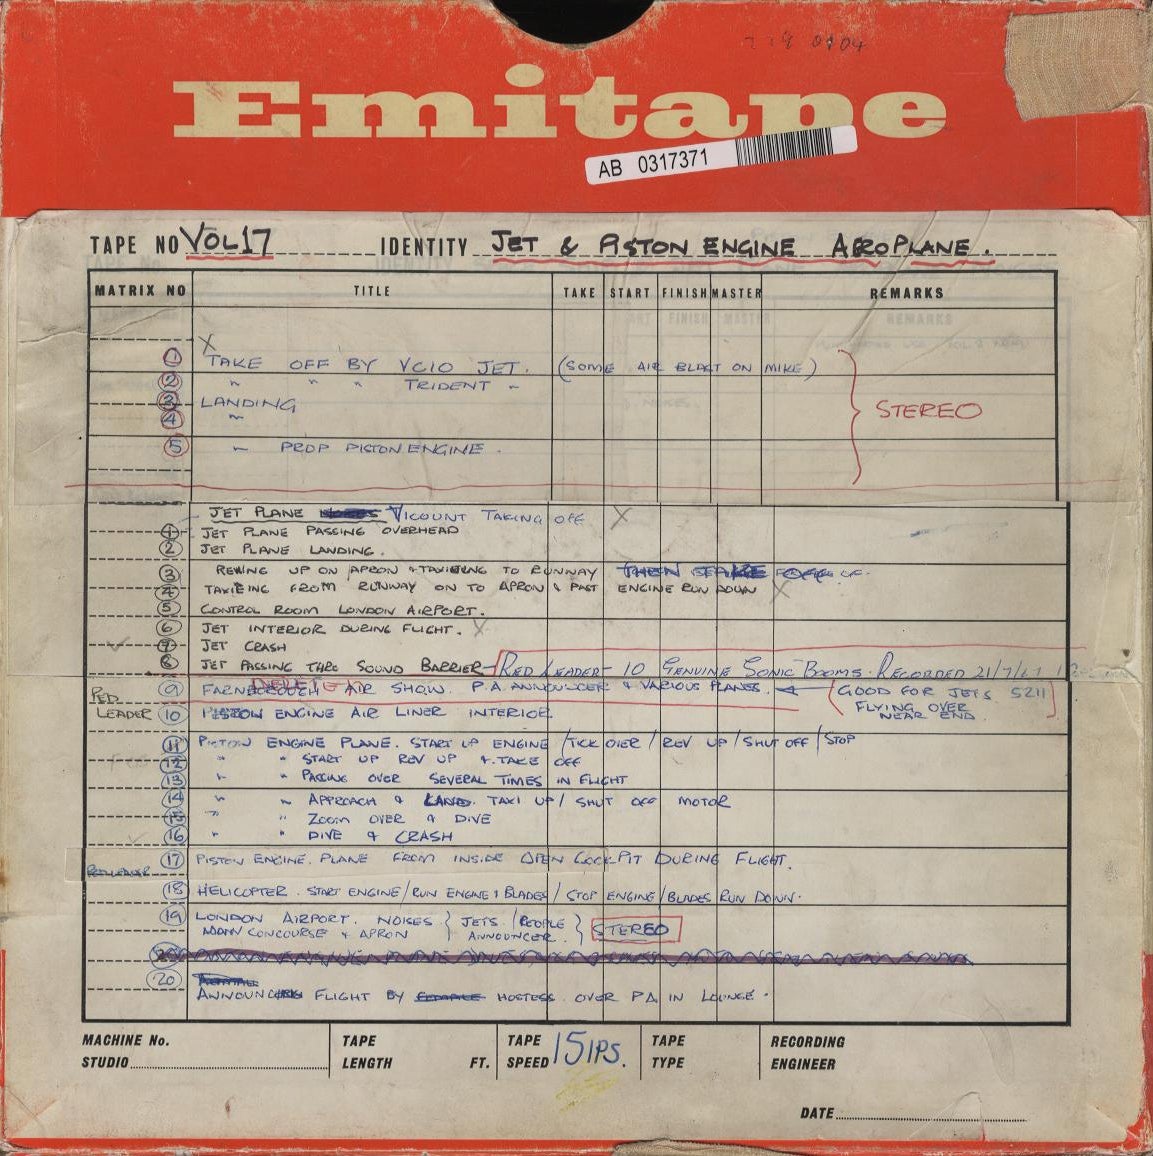 Emitape
AB 0317371
TAPE NO VOL 17 IDENTITY JET & PISTON ENGINE AEROPLANE.
MATRIX NO TITLE TAKE START FINISH MASTER REMARKS
X
1 TAKE OFF BY VC10 JET. (SOME AIR BLAST ON MIKE)
2 " " " TRIDENT "
3 LANDING
STEREO
4 "
5 " PROP PISTON ENGINE.
JET PLANE VICOUNT TAKING OFF X
1 JET PLANE PASSING OVERHEAD
2 JET PLANE LANDING.
3 REVVING UP ON APRON & TAXIING TO RUNWAY THEN TAKE OFF
4 TAXIEING FROM RUNWAY ON TO APRON & PAST ENGINE RUN DOWN X
5 CONTROL ROOM LONDON AIRPORT.
6 JET INTERIOR DURING FLIGHT. X
7 JET CRASH
8 JET PASSING THRO SOUND BARRIER - RED LEADER - 10 GENUINE SONIC BOOMS. RECORDED 21/7/67
9 FARNBOROUGH AIR SHOW. P.A. ANNOUNCER & VARIOUS PLANES. (GOOD FOR JETS 5211
FLYING OVER
NEAR END.)
RED
LEADER 10 PISTON ENGINE AIR LINER INTERIOR
11 PISTON ENGINE PLANE. START UP ENGINE / TICK OVER / REV UP / SHUT OFF / STOP
12 " " START UP REV UP & TAKE OFF
13 " " PASSING OVER SEVERAL TIMES IN FLIGHT
14 " " APPROACH & LAND. TAXI UP / SHUT OFF MOTOR
15 " " ZOOM OVER & DIVE
16 " " DIVE & CRASH
RED LEADER 17 PISTON ENGINE. PLANE FROM INSIDE OPEN COCKPIT DURING FLIGHT.
18 HELICOPTER. START ENGINE / RUN ENGINE & BLADES / STOP ENGINE / BLADES RUN DOWN.
19 LONDON AIRPORT. NOISES } JETS / PEOPLE } STEREO
MAIN CONCOURSE & APRON ANNOUNCER.
20 ANNOUNCING FLIGHT BY FEMALE HOSTESS OVER P.A. IN LOUNGE.
MACHINE No. TAPE TAPE 15 IPS. TAPE RECORDING
STUDIO LENGTH FT. SPEED TYPE ENGINEER
DATE